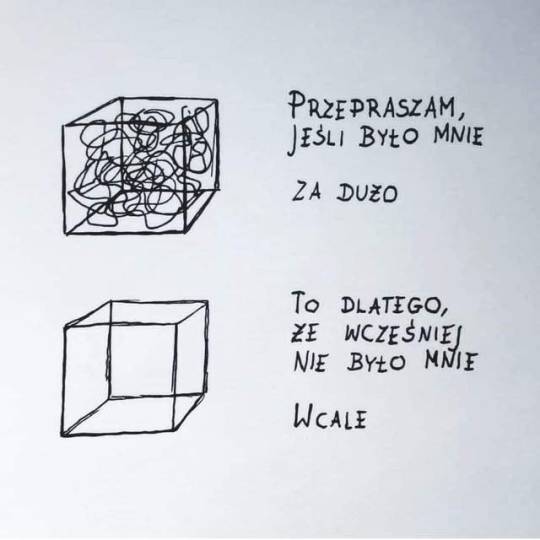 PRZEPRASZAM,
JEŚLI BYŁO MNIE
ZA DUŻO
TO DLATEGO,
ŻE WCZEŚNIEJ
NIE BYŁO MNIE
WCALE